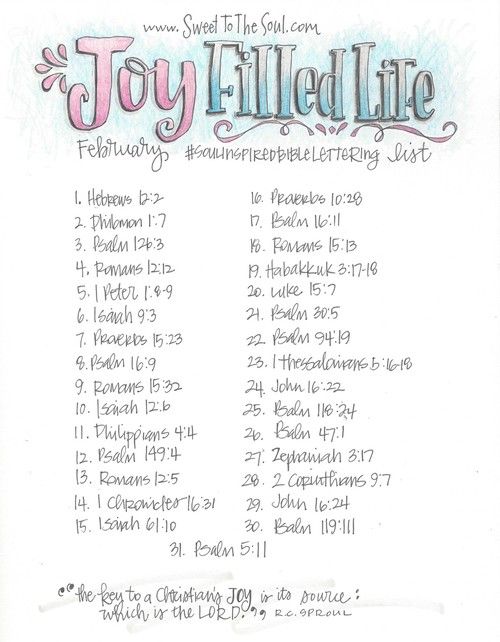 www.SweetToTheSoul.com
Joy Filled Life
February #soulinspiredbiblelettering list
1. Hebrews 12:2
2. Philemon 1:7
3. Psalm 126:3
4. Romans 12:12
5. 1 Peter 1:8-9
6. Isaiah 9:3
7. Proverbs 15:23
8. Psalm 16:9
9. Romans 15:32
10. Isaiah 12:6
11. Philippians 4:4
12. Psalm 149:4
13. Romans 12:5
14. 1 Chronicles 16:31
15. Isaiah 61:10
16. Proverbs 10:28
17. Psalm 16:11
18. Romans 15:13
19. Habakkuk 3:17-18
20. Luke 15:7
21. Psalm 30:5
22. Psalm 94:19
23. 1 Thessalonians 5:16-18
24. John 16:22
25. Psalm 118:24
26. Psalm 47:1
27. Zephaniah 3:17
28. 2 Corinthians 9:7
29. John 16:24
30. Psalm 119:111
31. Psalm 5:11
"the key to a Christian's JOY is its source:
which is the LORD." R.C. SPROUL